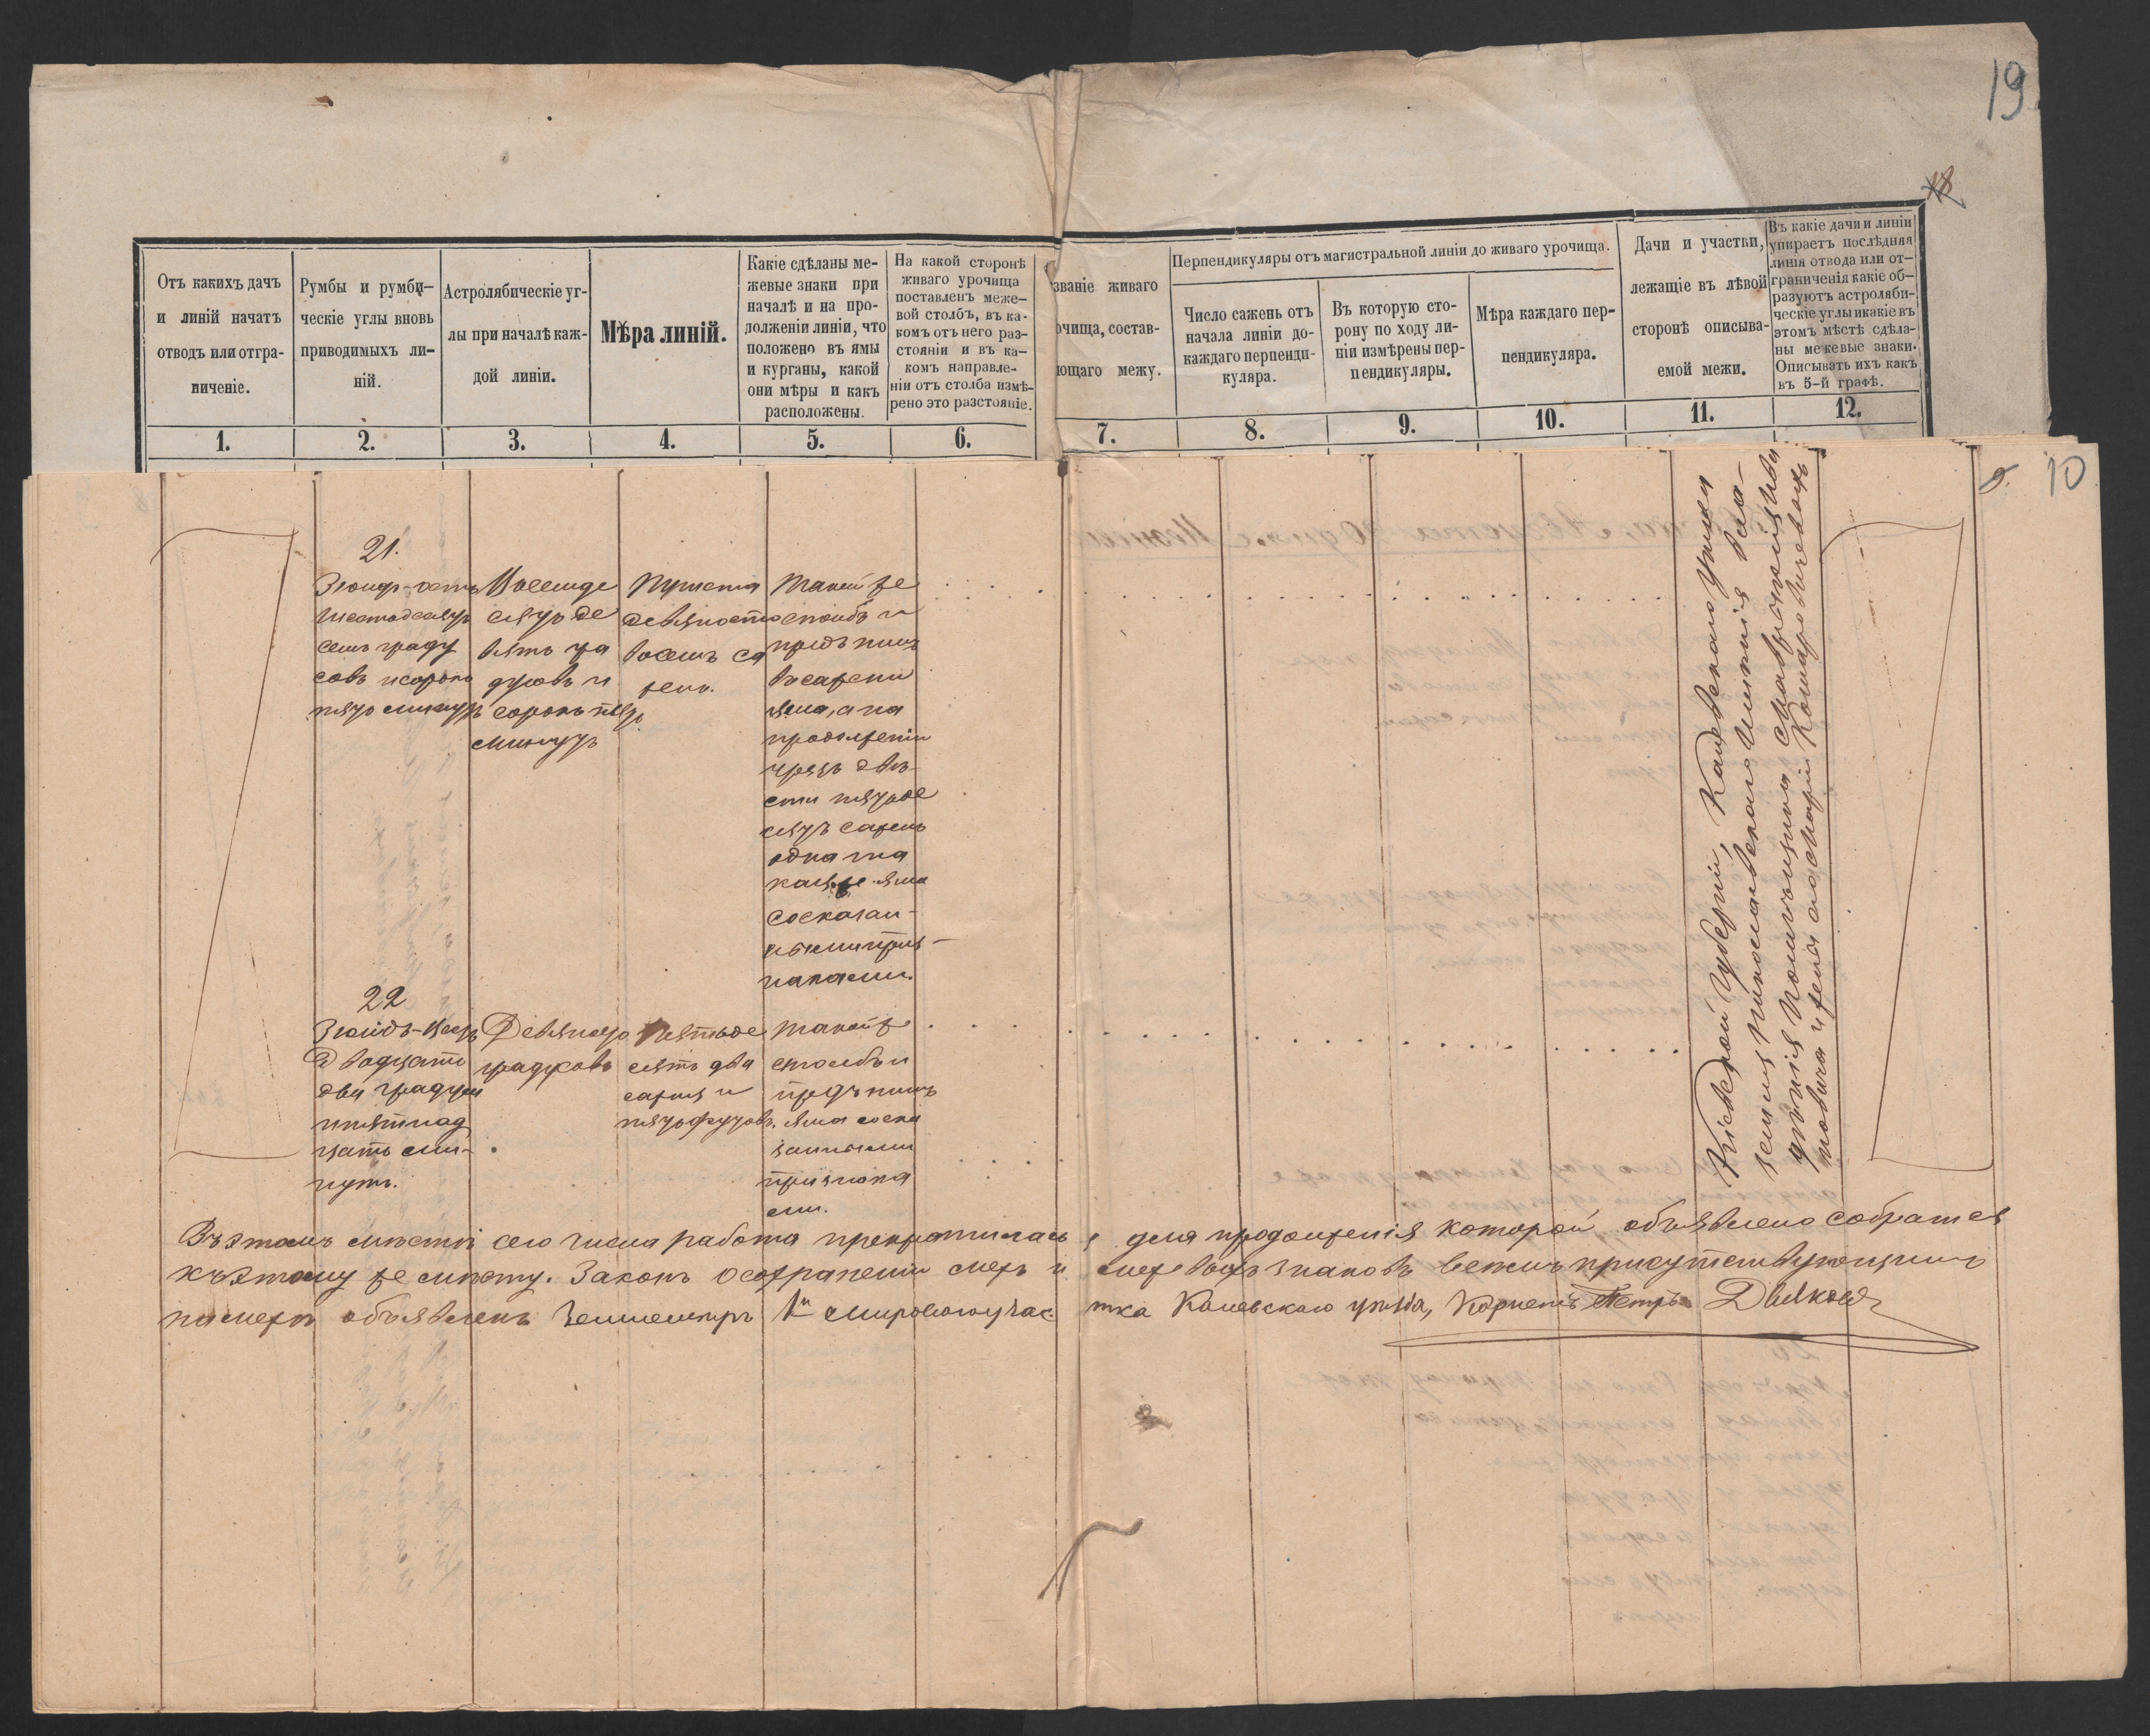 19
18
Отъ какихъ дачъ
и линій начатъ
отводъ или отгра-
ниченіе.
Румбы и румби-
ческіе углы вновь
приводимыхъ ли-
ній.
Астролябическіе уг-
лы при началѣ каж-
дой линіи.
Мѣра линій.
Какіе сдѣланы ме-
жевые знаки при
началѣ и на про-
долженіи линіи, что
положено въ ямы
и курганы, какой
они мѣры и какъ
расположены.
На какой сторонѣ
живаго урочища
поставленъ меже-
вой столбъ, въ ка-
комъ отъ него раз-
стояніи и въ ка-
комъ направле-
ніи отъ столба измѣ-
рено это разстояніе.
званіе живаго
очища, состав-
ющаго межу.
Перпендикуляры отъ магистральной линіи до живаго урочища.
Число сажень отъ
начала линіи до-
каждаго перпенди-
куляра.
Въ которую сто-
рону по ходу ли-
ніи измѣрены пер-
пендикуляры.
Мѣра каждаго пер-
пендикуляра.
Дачи и участки,
лежащіе въ лѣвой
сторонѣ описыва-
емой межи.
Въ какіе дачи и линіи
упираетъ послѣдняя
линія отвода или от-
граниченія какіе об-
разуютъ астроляби-
ческіе углы и какіе въ
этомъ мѣстѣ сдѣла-
ны межевые знаки.
Описывать ихъ какъ
въ 5-й графѣ.
1. 2. 3. 4. 5. 6. 7. 8. 9. 10. 11. 12.
9. 10
21.
Зюидъ-остъ
шестьдесятъ
семь граду
совъ и сорокъ
пять минутъ
Восемьде
сятъ де
вять гра
дусовъ и
сорокъ пять
минутъ
Пятьсотъ
девяносто
восемь са
жень.
Такой же
столбъ и
предъ нимъ
въ сажени
яма, а на
продолженіи
чрезъ двѣ-
сти пятьде
сятъ сажень
одна та
кая же яма
со сказан-
ными приз-
наками.
22
Зюидъ-Вестъ
Двадцать
два градуса
и пятнад
цать ми-
нутъ.
Девяносто
градусовъ
Пятьде
сятъ два
сажня и
пять футовъ.
Такой же
столбъ и
предъ нимъ
яма со ска
занными
признака
ми.
Кіевской губерніи, Каневскаго уѣзда
земля римокатолическаго
имѣнія помѣщика
и жены его Маріи
Въ этомъ мѣстѣ сего числа работа прекратилась, для продолженія которой объявлено собраться
къ этому же мѣсту. Законъ о сохраненіи межъ и межевыхъ знаковъ всѣмъ присутствующимъ
на межѣ объявленъ Землемѣръ 1го мироваго учас тка Каневскаго уѣзда, Корнетъ Петръ